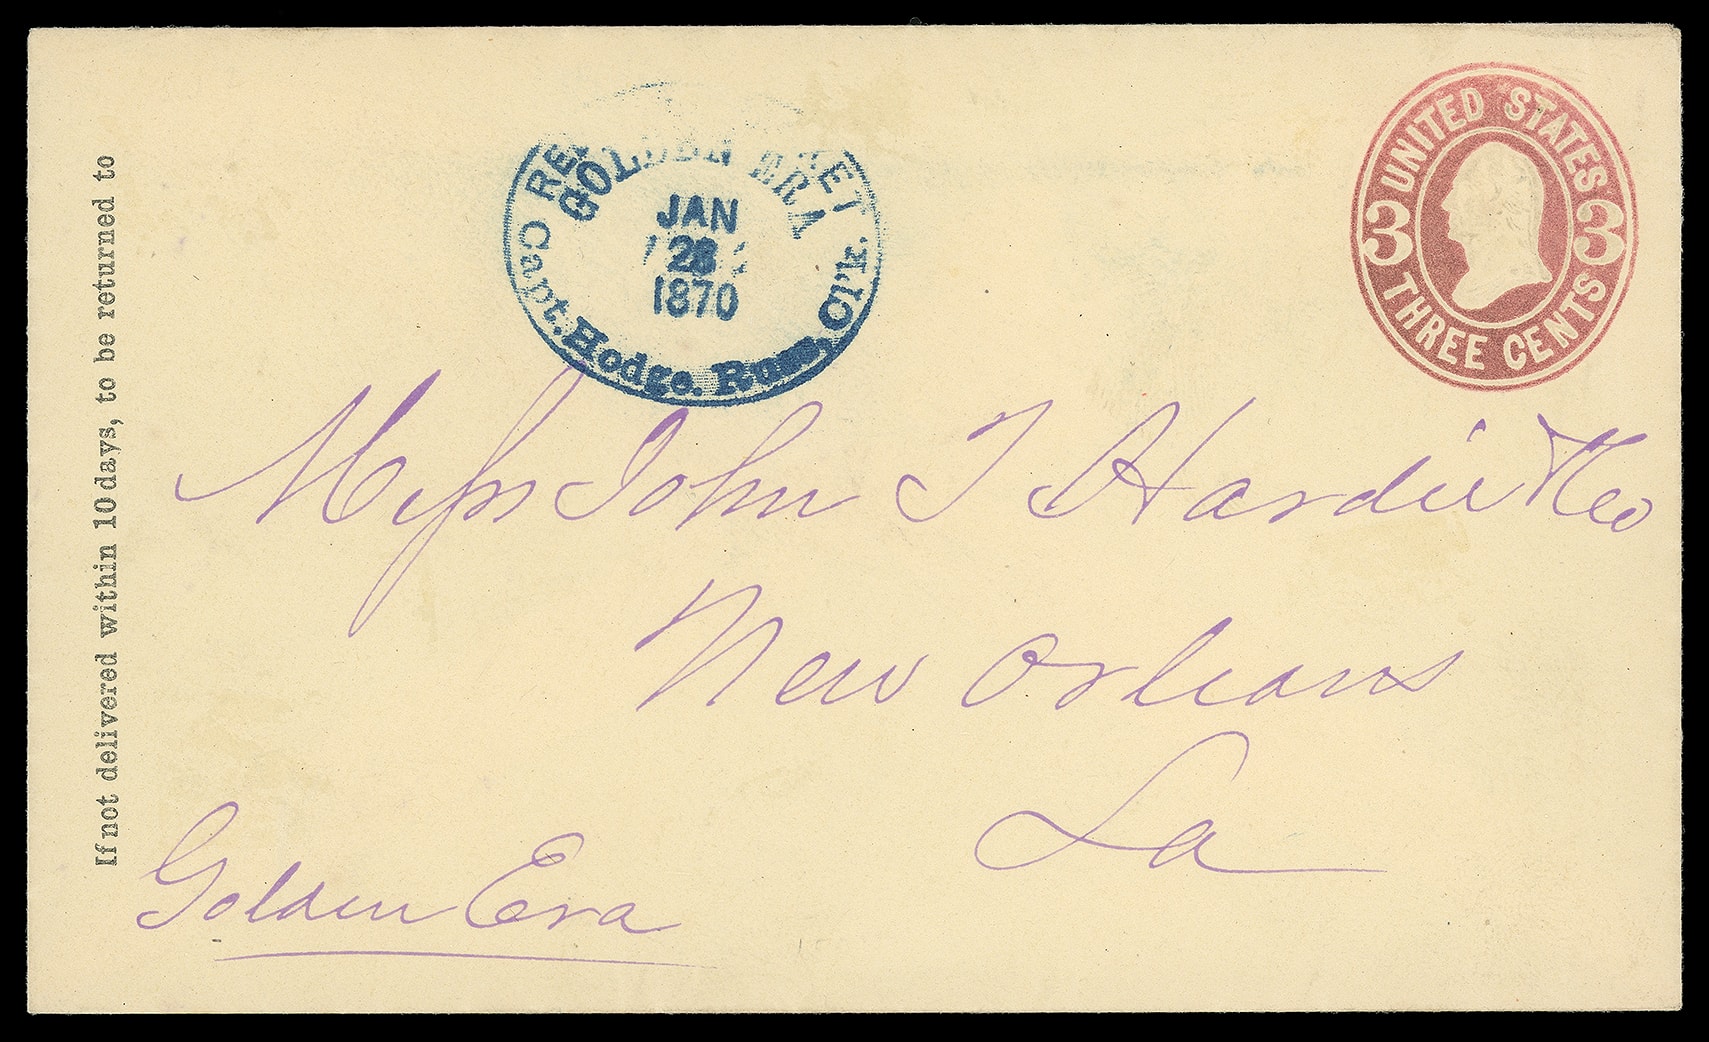 If not delivered within 10 days, to be returned to
GOLDEN ERA
JAN
28
1870
Capt. Hodge. Russ, Cl'k.
UNITED STATES
3 3
THREE CENTS
Mess John T Hardie & Co
New Orleans
La
Golden Era